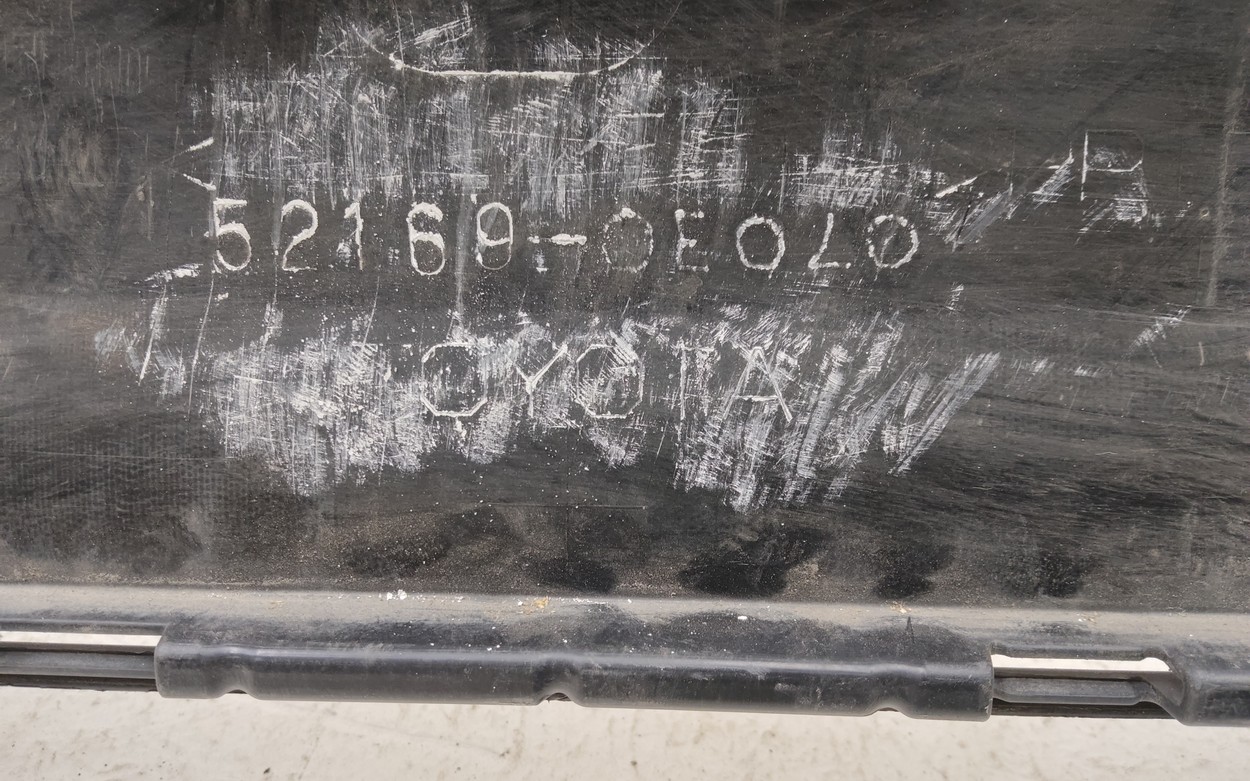 R
52169-0E0L0
OYOTA